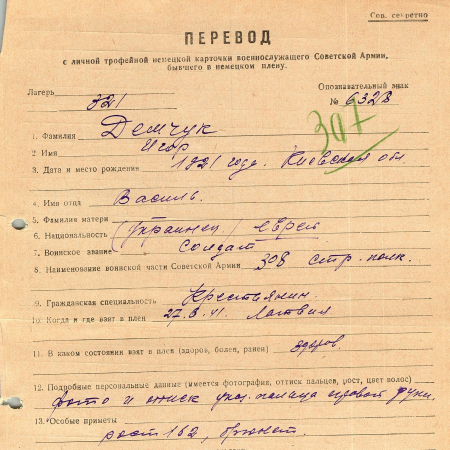 Сов. секретно
ПЕРЕВОД
с личной трофейной немецкой карточки военнослужащего Советской Армии,
бывшего в немецком плену.
Лагерь 321
Опознавательный знак
№ 6328
307
1. Фамилия Демчук
2. Имя Игор
3. Дата и место рождения 1921 года. Киевская обл
4. Имя отца Василь.
5. Фамилия матери
6. Национальность (украинец) еврей
7. Воинское звание солдат
8. Наименование воинской части Советской Армии 308 стр. полк.
9. Гражданская специальность Крестьянин.
10. Когда и где взят в плен 27.8.41. Латвия
11. В каком состоянии взят в плен (здоров, болен, ранен) здоров.
12. Подробные персональные данные (имеется фотография, оттиск пальцев, рост, цвет волос)
фото и оттиск указ. пальца правой руки.
13. Особые приметы
рост 162, брюнет.